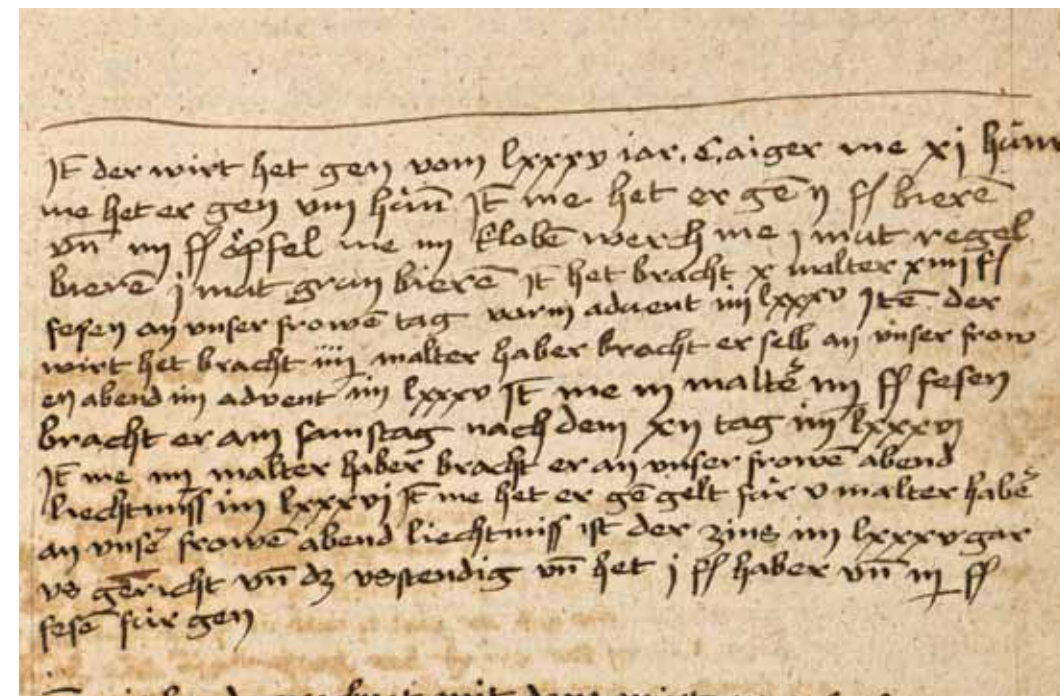 It der wirt het gen vom lxxxv iar. C. aiger me xj hůnr
me het er gen viij hůn̄ It me het er gē ij ſſ bierē
vn̄ iiij ſſ öpfel me iij klobē werch me j mut regel
bierē j mut grun bierē It het bracht x malter xiiij ſſ
fesen an vnser frowē tag vorm advent im lxxxv Itē der
wirt het bracht iiij malter haber bracht er selb an vnser frow
en abend im advent im lxxxv It me iij maltē iiij ſſ fesen
bracht er am samstag nach dem xij tag im lxxxvj
It me iiij malter haber bracht er an vnser frowē abend
liechtmiss im lxxxvj It me het er gē gelt für v malter habē
an vnsē frowē abend liechtmiss ist der zins im lxxxv gar
vs gericht vn̄ dz vsstendig vn̄ het j ſſ haber vn̄ iij ſſ
fesē für gen